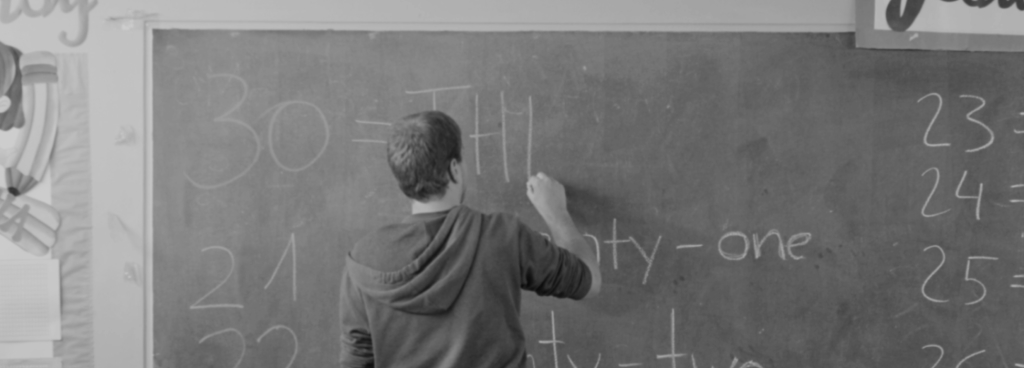 30 = TH
21
nty-one
22
ty-two
23 =
24 =
25 =
26